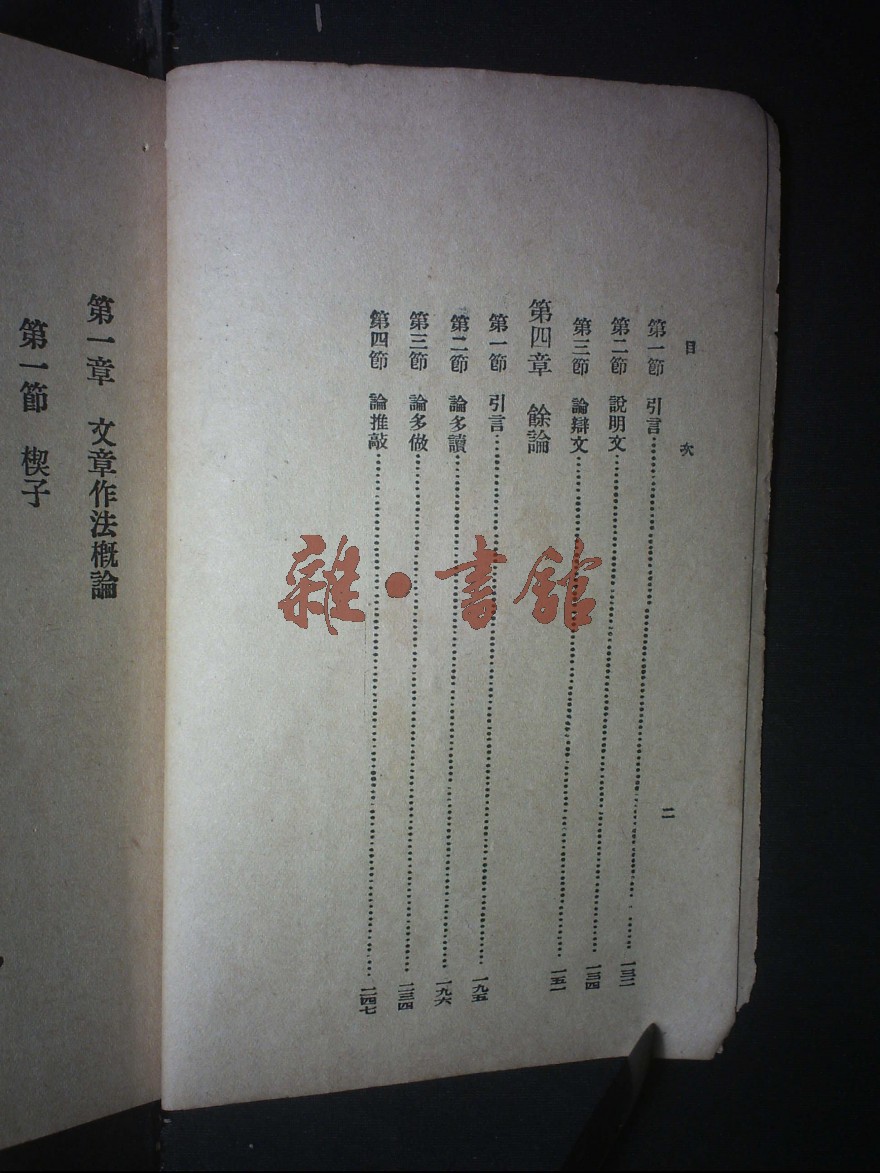 目次
二
第一節 引言……一三二
第二節 說明文……一三四
第三節 論辯文……一五一
第四章 餘論
第一節 引言……一九五
第二節 論多讀……一九六
第三節 論多做……二三四
第四節 論推敲……二四七
雜·書館
第一章 文章作法概論
第一節 楔子